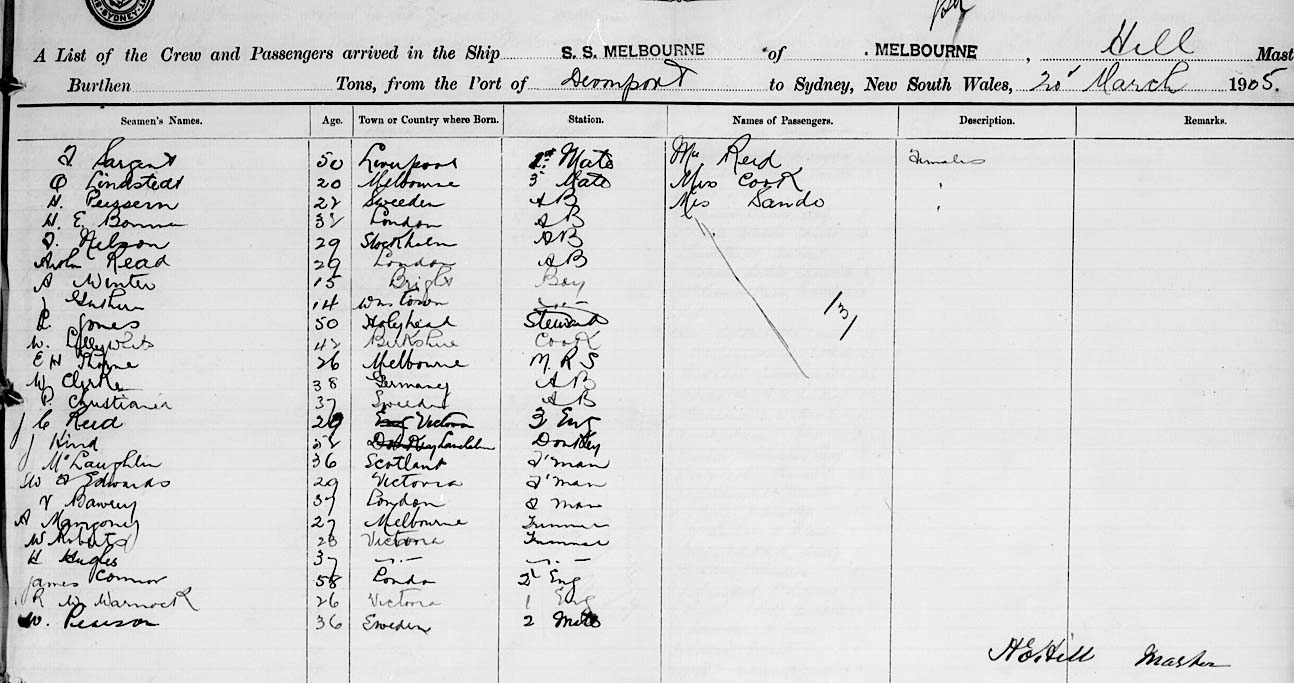 A List of the Crew and Passengers arrived in the Ship S. S. MELBOURNE of MELBOURNE, Hill Mast
Burthen Tons, from the Port of Devonport to Sydney, New South Wales, 20 March 1905.
Seamen's Names. Age. Town or Country where Born. Station. Names of Passengers. Description. Remarks.
Sargent 50 Liverpool 1st Mate Reid Females
Lindstedt 20 Melbourne 3 Mate Miss Cook
22 Sweeden AB Sando
H. E. London AB
Nelson 29 Stockholm AB
Read 29 London AB
A Winter 15 Bright Boy
14 Wmstown
Jones 50 Holyhead Steward
W. 42 Berkshire Cook
E H Thorne 26 Melbourne M. R S
38 Germaney AB
37 Sweeden AB
J C Reid 29 Victoria 3 Eng
J Hind Donkey
J McLaughlin 36 Scotland F'man
Edwards 29 Victoria F'man
37 London F man
A 27 Melbourne Trimmer
W Roberts 23 Victoria Trimmer
H Hughes 37
James Connor 58 2 Eng
R Warnock 26 Victoria 1 Eng
W. Pearson 36 Sweden 2 Mate
13
H E Hill Master